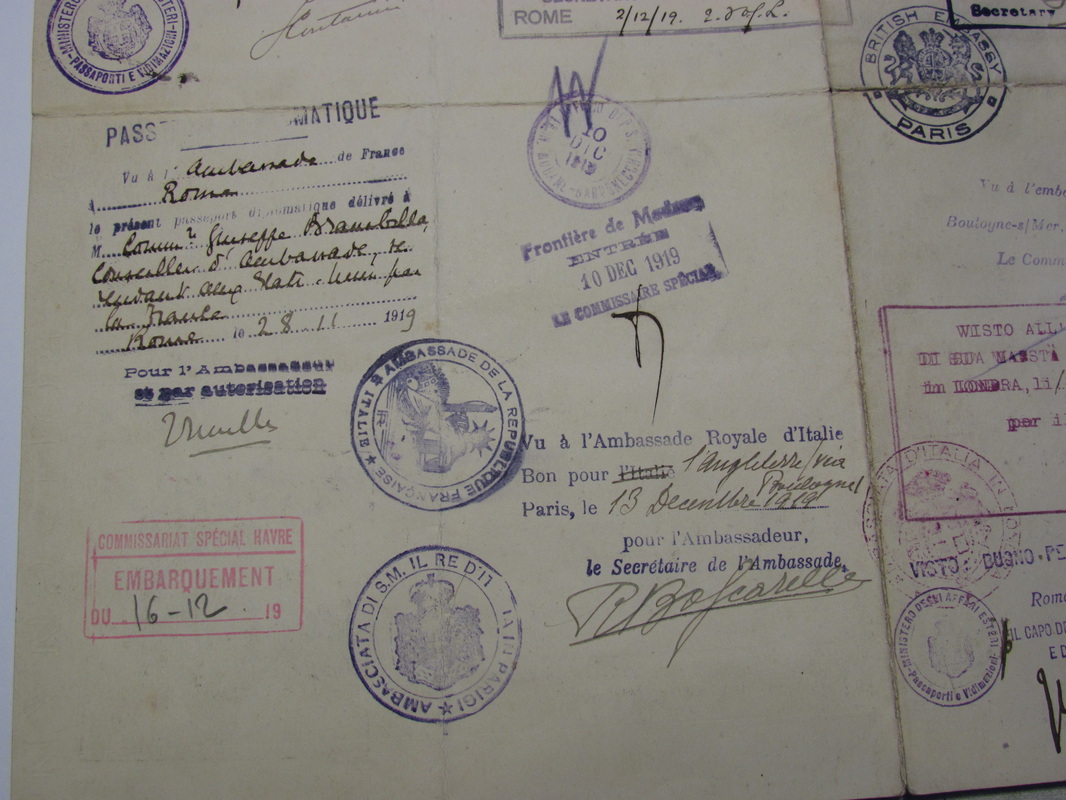 MINISTERO DEGLI AFFARI ESTERI
PASSAPORTI E VIDIMAZIONI
ROME 2/12/19.
BRITISH EMBASSY
PARIS
Secretary
PASS MATIQUE
Vu à l'Ambassade de France
à Rome
le présent passeport diplomatique délivré à
M. Comm. Giuseppe Brambilla,
Conseiller d'ambassade, se
rendant aux Etats-Unis par
la France
Rome le 28.11 1919
Pour l'Ambassadeur
et par autorisation
10
DIC
1919
Frontière de Modane
ENTRÉE
10 DEC 1919
LE COMMISSAIRE SPÉCIAL
AMBASSADE DE LA REPUBLIQUE FRANÇAISE
ITALIE
Vu à l'Ambassade Royale d'Italie
Bon pour l'Italie l'Angleterre/via
Boulogne/
Paris, le 13 Decembre 1919
pour l'Ambassadeur,
le Secrétaire de l'Ambassade,
COMMISSARIAT SPÉCIAL HAVRE
EMBARQUEMENT
DU 16-12. 19
AMBASCIATA DI S.M. IL RE D'IT IA IN PARIGI
Vu à l'emb
Boulogne-s/Mer,
Le Comm
VISTO ALL'
DI SUA MAESTÀ
in LONDRA, li
per il
D'ITALIA IN
VISTO: BUONO PE
Rome
MINISTERO DEGLI AFFARI ESTERI
Passaporti e Vidimazioni
IL CAPO DE
E D